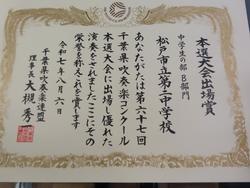 本選大会出場賞
中学生の部 B部門
松戸市立第六中学校
あなたがたは第六十七回
千葉県吹奏楽コンクール
本選大会に出場し優れた
演奏をされましたここにその
栄誉を称えこれを賞します
令和七年八月六日
千葉県吹奏楽連盟
理事長 大槻秀一